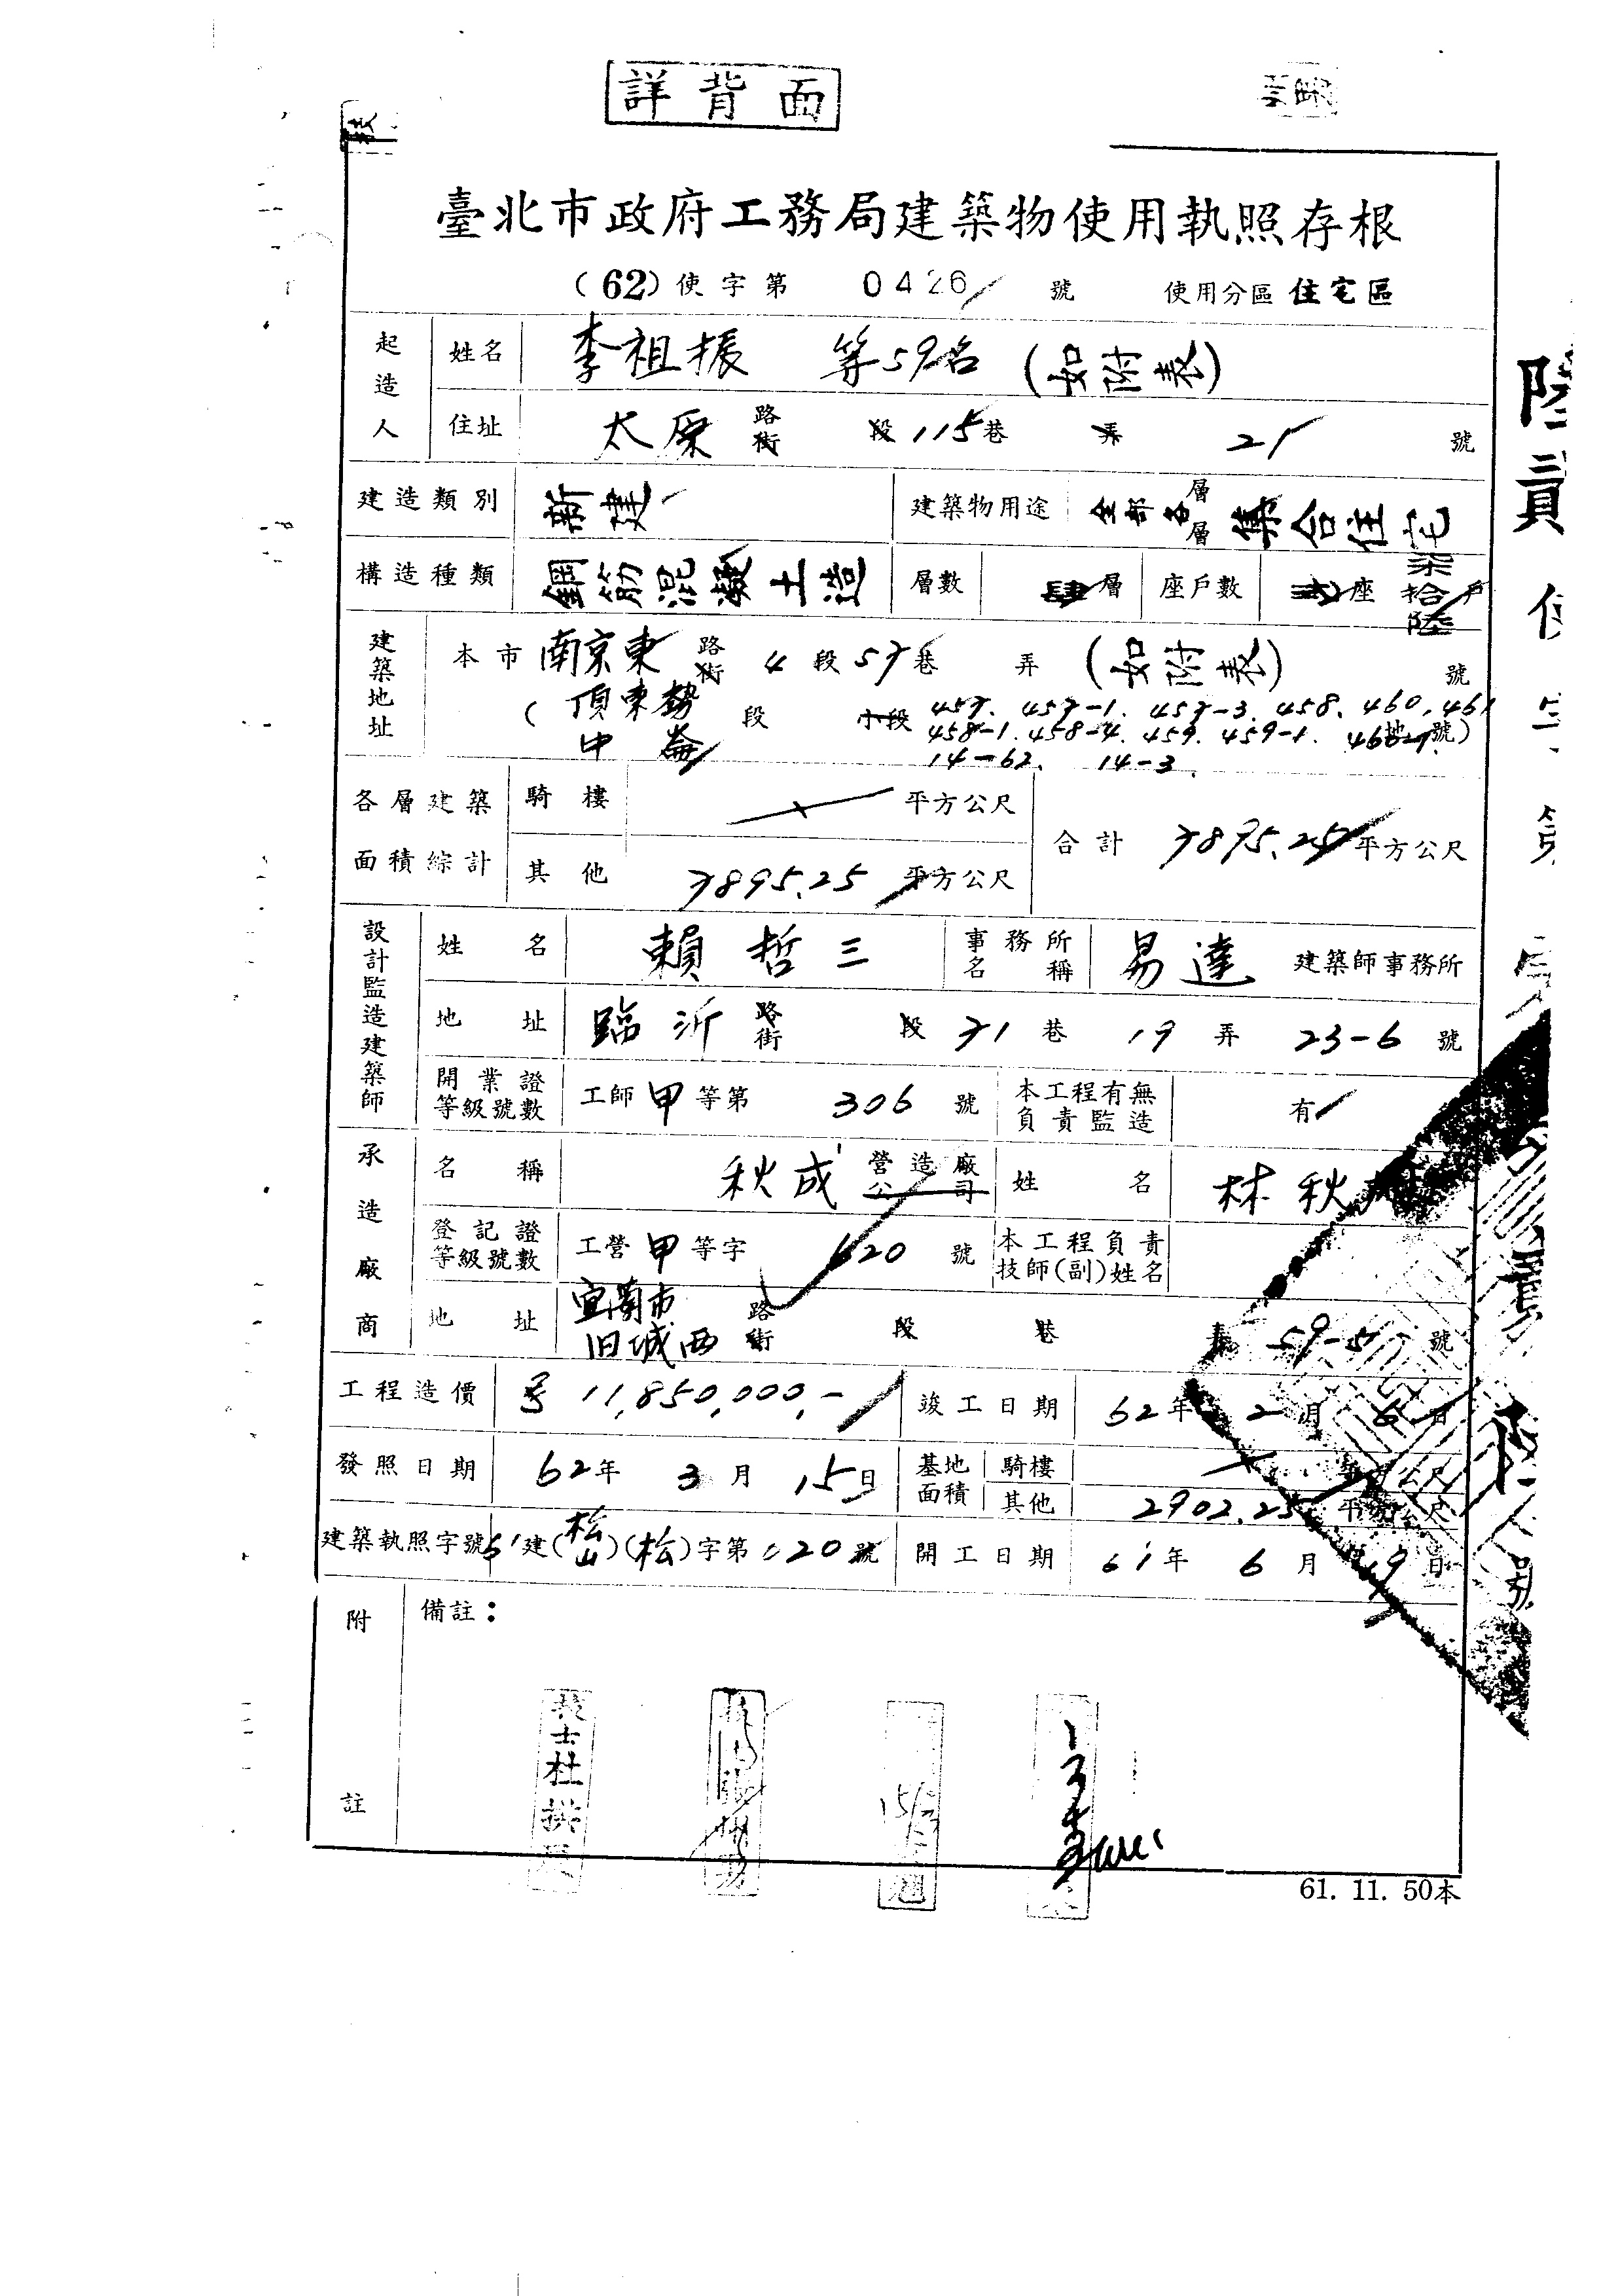 詳背面
臺北市政府工務局建築物使用執照存根
(62)使字第 0426 號 使用分區 住宅區
起造人 姓名 李祖振 等59名 (如附表)
住址 太原 路街 段 115巷 弄 21 號
建造類別 新建 建築物用途 全部各層層 集合住宅
構造種類 鋼筋混凝土造 層數 肆層 座戶數 座 柒拾陸戶
建築地址 本市 南京東 路街 4段 57巷 弄 (如附表) 號
(頂東勢 段 小段 457. 457-1. 457-3. 458. 460. 461
中崙 458-1. 458-4. 459. 459-1. 地號)
14-62. 14-3.
各層建築面積綜計 騎樓 平方公尺 合計 7895.25 平方公尺
其他 7895.25 平方公尺
設計監造建築師 姓名 賴哲三 事務所名稱 易達 建築師事務所
地址 臨沂 路街 段 71 巷 19 弄 23-6 號
開業證等級號數 工師 甲 等第 306 號 本工程有無負責監造 有
承造廠商 名稱 秋成 營造廠公司 姓名 林秋
登記證等級號數 工營 甲 等字 620 號 本工程負責技師(副)姓名
地址 宜蘭市旧城西 路街 段 巷 弄 59-5 號
工程造價 11,850,000,- 竣工日期 62年 2月 6日
發照日期 62年 3月 15日 基地面積 騎樓 平方公尺
其他 2902.25 平方公尺
建築執照字號 61建(松山)(松)字第020號 開工日期 61年 6月 19日
附註 備註：
技士杜
61. 11. 50本